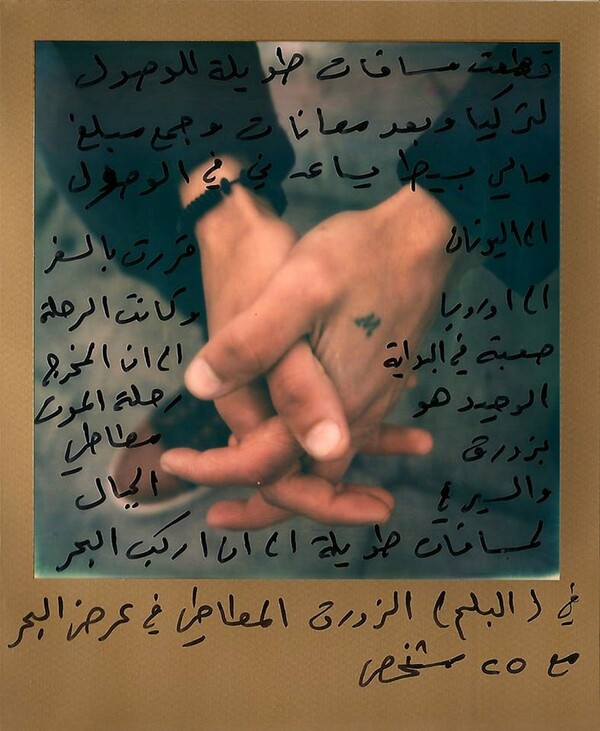 قطعت مسافات طويلة للوصول
لتركيا وبعد معانات وجمع مبلغ
مالي بسيط يساعدني في الوصول
الى اليونان قررت بالسفر
الى اوروبا وكانت الرحلة
صعبة في البداية الى ان المخرج
الوحيد هو رحلة الموت
بزورق مطاطي
والسير في الجبال
لمسافات طويلة الى ان اركب البحر
في (البلم) الزورق المطاطي في عرض البحر
مع ٢٥ شخص